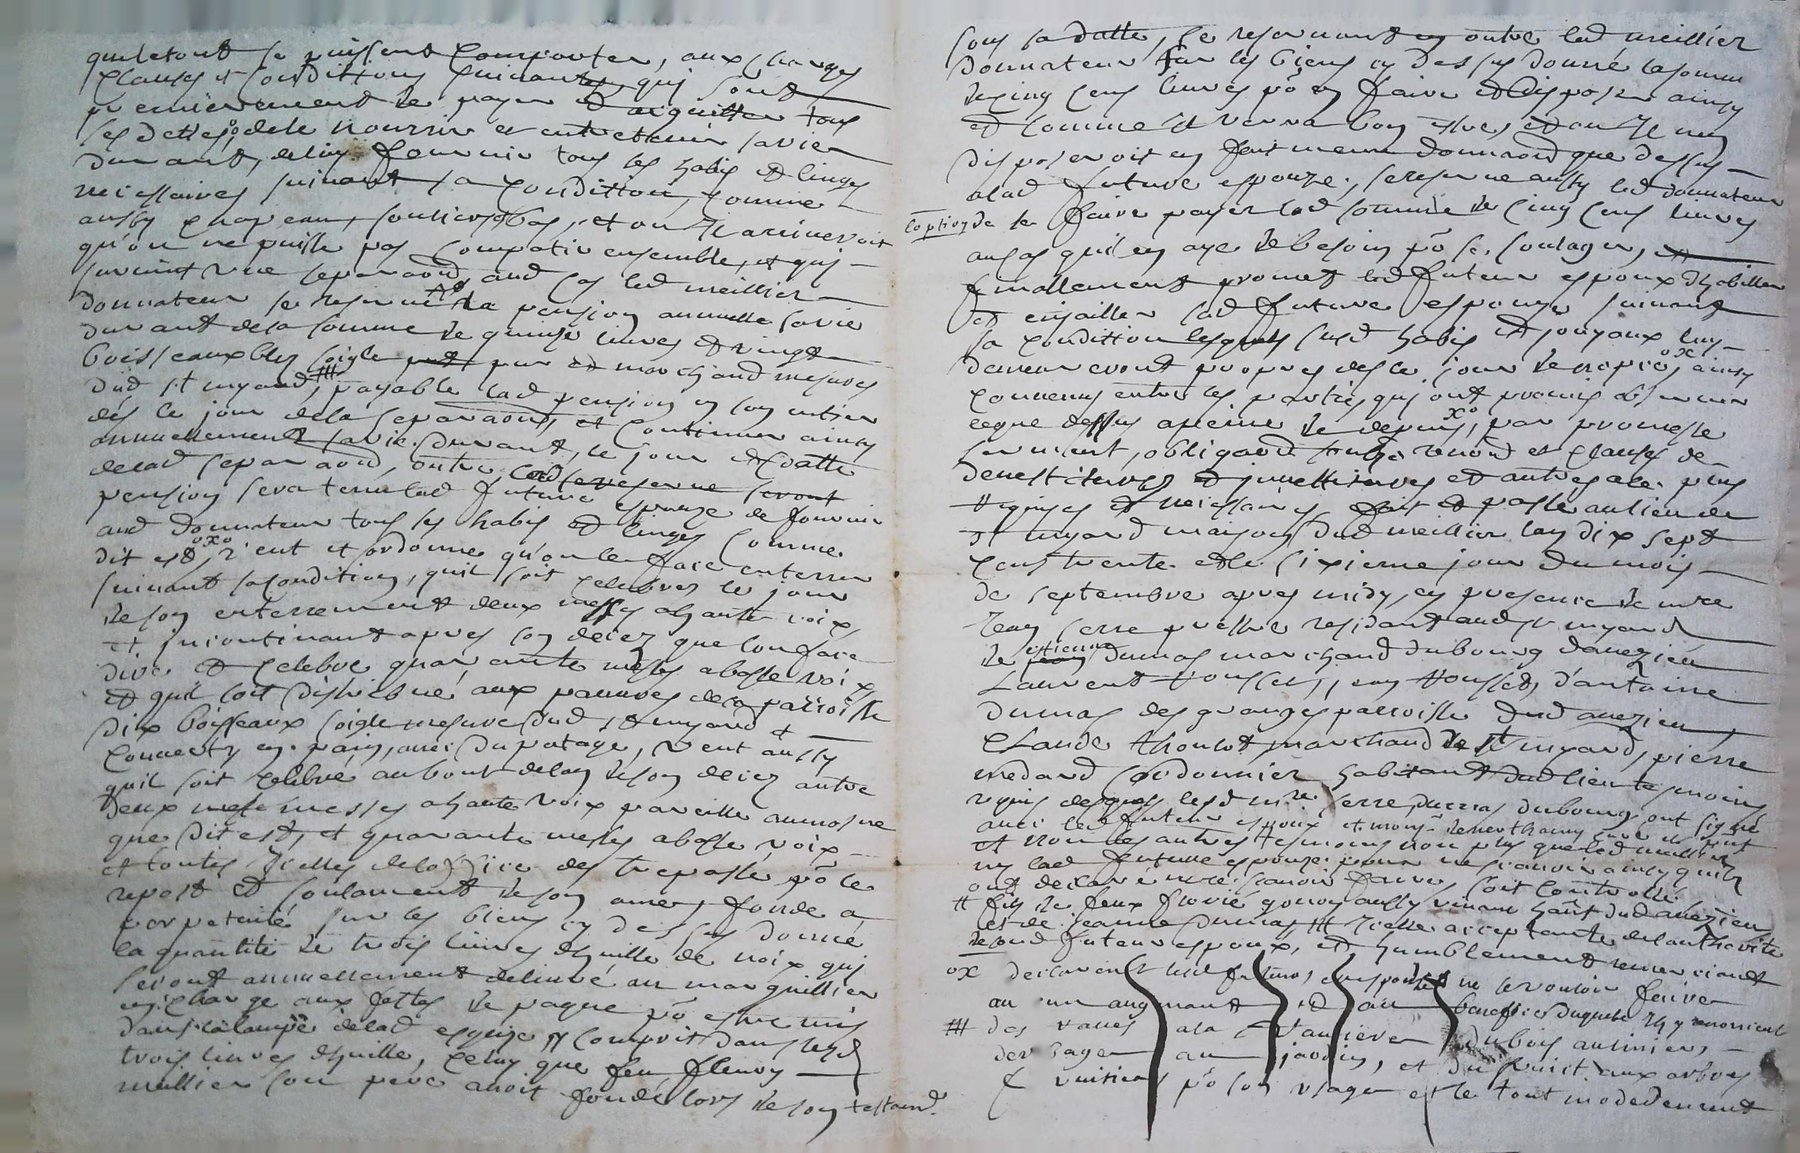 qui le tout se puissent Comporter, aux charges
Clauses et Condittons suivantes, qui sont
premierement de payer et aiquitter tous
ses dettes, de le nourrir et entretenir sa vie
durant, de luy fournir tous les habis et linges
neiessaires suivant sa Condittion, comme
aussy chapeau, souliers, bas, et ou Il arriveroit
qu'on ne puisse pas Compatir ensemble, et qui
survint une separaõn, aud cas led meillier
donnateur se reserve la pension annuelle sa vie
durant de la somme de quinze livres et vingt
boisseaux bled soigle pur et marchand mesures
dud st myard, payable lad pension en son entier
dés le jour de la separaõn, et Continuer ainsy
annuellement sa vie durant, le jour et datte
de lad separaõn, outre
pension sera tenu lad future espouze de fournir
aud donnateur tous les habis et linges Comme
dit est, veut et ordonne qu'on le face enterrer
suivant sa Condition, quil soit Celebrer le jour
de son enterrement deux messes a haute voix
et incontinant apres son decez que lon face
dire et Celebre quarante messes a basse voix
et quil soit distribué aux pauvres de la parroisse
dix boisseaux soigle mesure dud st myard
Converty en pain, avec du potage, veut aussy
quil soit Celebré au bout de lan de son decez autre
deux messes a haute voix pareille aumosne
que dit est, et quarante messes a basse voix
et toutes Icelles de loffice des trepassé põ le
repost et soulament de son ame, fonde a
perpetuité sur les biens cy dessus donné
la quantité de trois livres dhuille de noix qui
seront annuellement delivré au marguillier
en Charge aux festes de paque põ estre mis
dans la lampe de lad esglize y Comprit dans lesd
trois livres dhuille, Celuy que feu fleury
meillier son pere avoit fondé lors de son testamt.
sous sa datte, se reservant en outre led meillier
donnateur sur les biens cy dessus donné la somme
de cinq cens livres põ en faire et disposer ainsy
et comme Il verra bon estre, et ou Il ne
disposeroit en fait mesme donnaõn que dessus
a lad future espouze, se reserve aussy led donnateur
loption de se faire payer lad somme de cinq cens livres
au cas quil en aye de besoin põ se soulager,
finallement promet led futeur espoux dhabiller
et enjailler lad future espouze suivant
sa Condittion lesquels susd habis et jouyaux luy
demeureront propres des le jour de nopces, ainsy
Convenus entre les parties qui ont promis observer
ceque dessus a peine de depens, par promesse
serment, obligaõn, renõn et Clauses de
fait et passé au lieu de
st myard maison dud meillier lan dix sept
cens trente et le sixieme jour du mois
de septembre apres midy, en presence de mre
Jean serre prestre residant aud st myard
sr estienne dumas marchand du bourg davezieu
Laurent Jean d'antoine
dumas des granges parroisse dud avezieu
Claude thoulot marchand de st myard, pierre
medard Cordonnier habitant dud lieu tesmoins
requis desquels lesd mre serre, dumas du bourg ont signé
avec led futeur espoux et
et non les autres tesmoins non plus que led meillier
ny lad future espouze pour ne scavoir ainsy quils
ont declaré de ce scavoir faire, soit Controllé
# fils de feux aussy vivant hañt dud avezieu
et de jeanne dumas # Icelle acceptante de lauthorité
dud futeur espoux, et humblement remerciant
ox declarent lesd futurs espoux ne se vouloir faire
aucun augmant et au benefice duquel Ils y renoncent
# des raves a la du bois
au jardin, et du fruict aux arbres
fruitiers põ son usage et le tout moderement